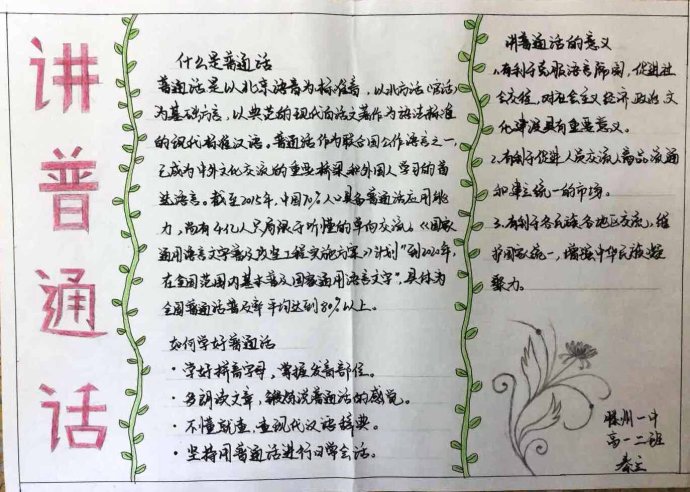 讲普通话
什么是普通话
普通话是以北京语音为标准音，以北方话（官话）
为基础方言，以典范的现代白话文著作为语法标准
的现代标准汉语。普通话作为联合国工作语言之一，
已成为中外文化交流的重要桥梁和外国人学习的首
选语言。截至2015年，中国70%人口具备普通话应用能
力，尚有4亿人只局限于听懂的单向交流。《国家
通用语言文字普及攻坚工程实施方案》计划"到2020年，
在全国范围内基本普及国家通用语言文字"，具体为
全国普通话普及率平均达到80%以上。
如何学好普通话
·学好拼音字母，掌握发音部位。
·多朗读文章，锻炼说普通话的感觉。
·不懂就查，查现代汉语辞典。
·坚持用普通话进行日常会话。
讲普通话的意义
1.有利于克服语言隔阂，促进社
会交往，对社会主义经济政治文
化建设具有重要意义。
2.有利于促进人员交流，商品流通
和建立统一的市场。
3.有利于各民族各地区交流，维
护国家统一，增强中华民族凝
聚力。
滕州一中
高一二班
秦立